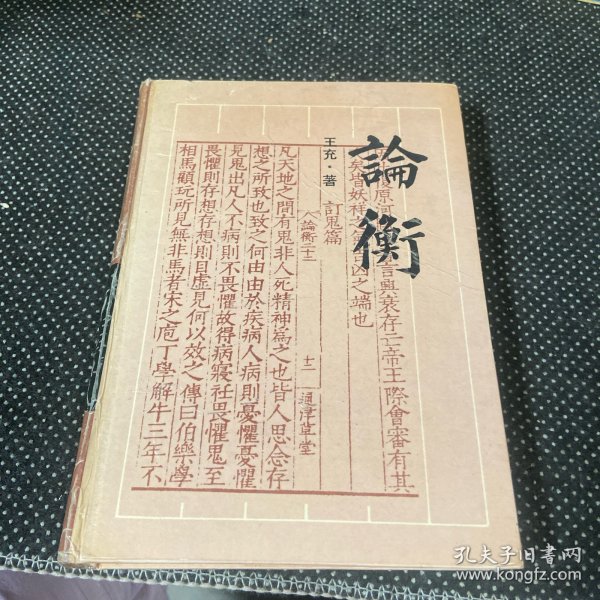 論衡
王充·著
言興衰存亡帝王際會審有其
矣皆妖祥之
凶之端也
訂鬼篇
論衡二十二
十二
通津草堂
凡天地之間有鬼非人死精神為之也皆人思念存
想之所致也致之何由由於疾病人病則憂懼憂懼
見鬼出凡人不病則不畏懼故得病寢衽畏懼鬼至
畏懼則存想存想則目虛見何以效之傳曰伯樂學
相馬顧玩所見無非馬者宋之庖丁學解牛三年不
孔夫子旧书网
www.kongfz.com